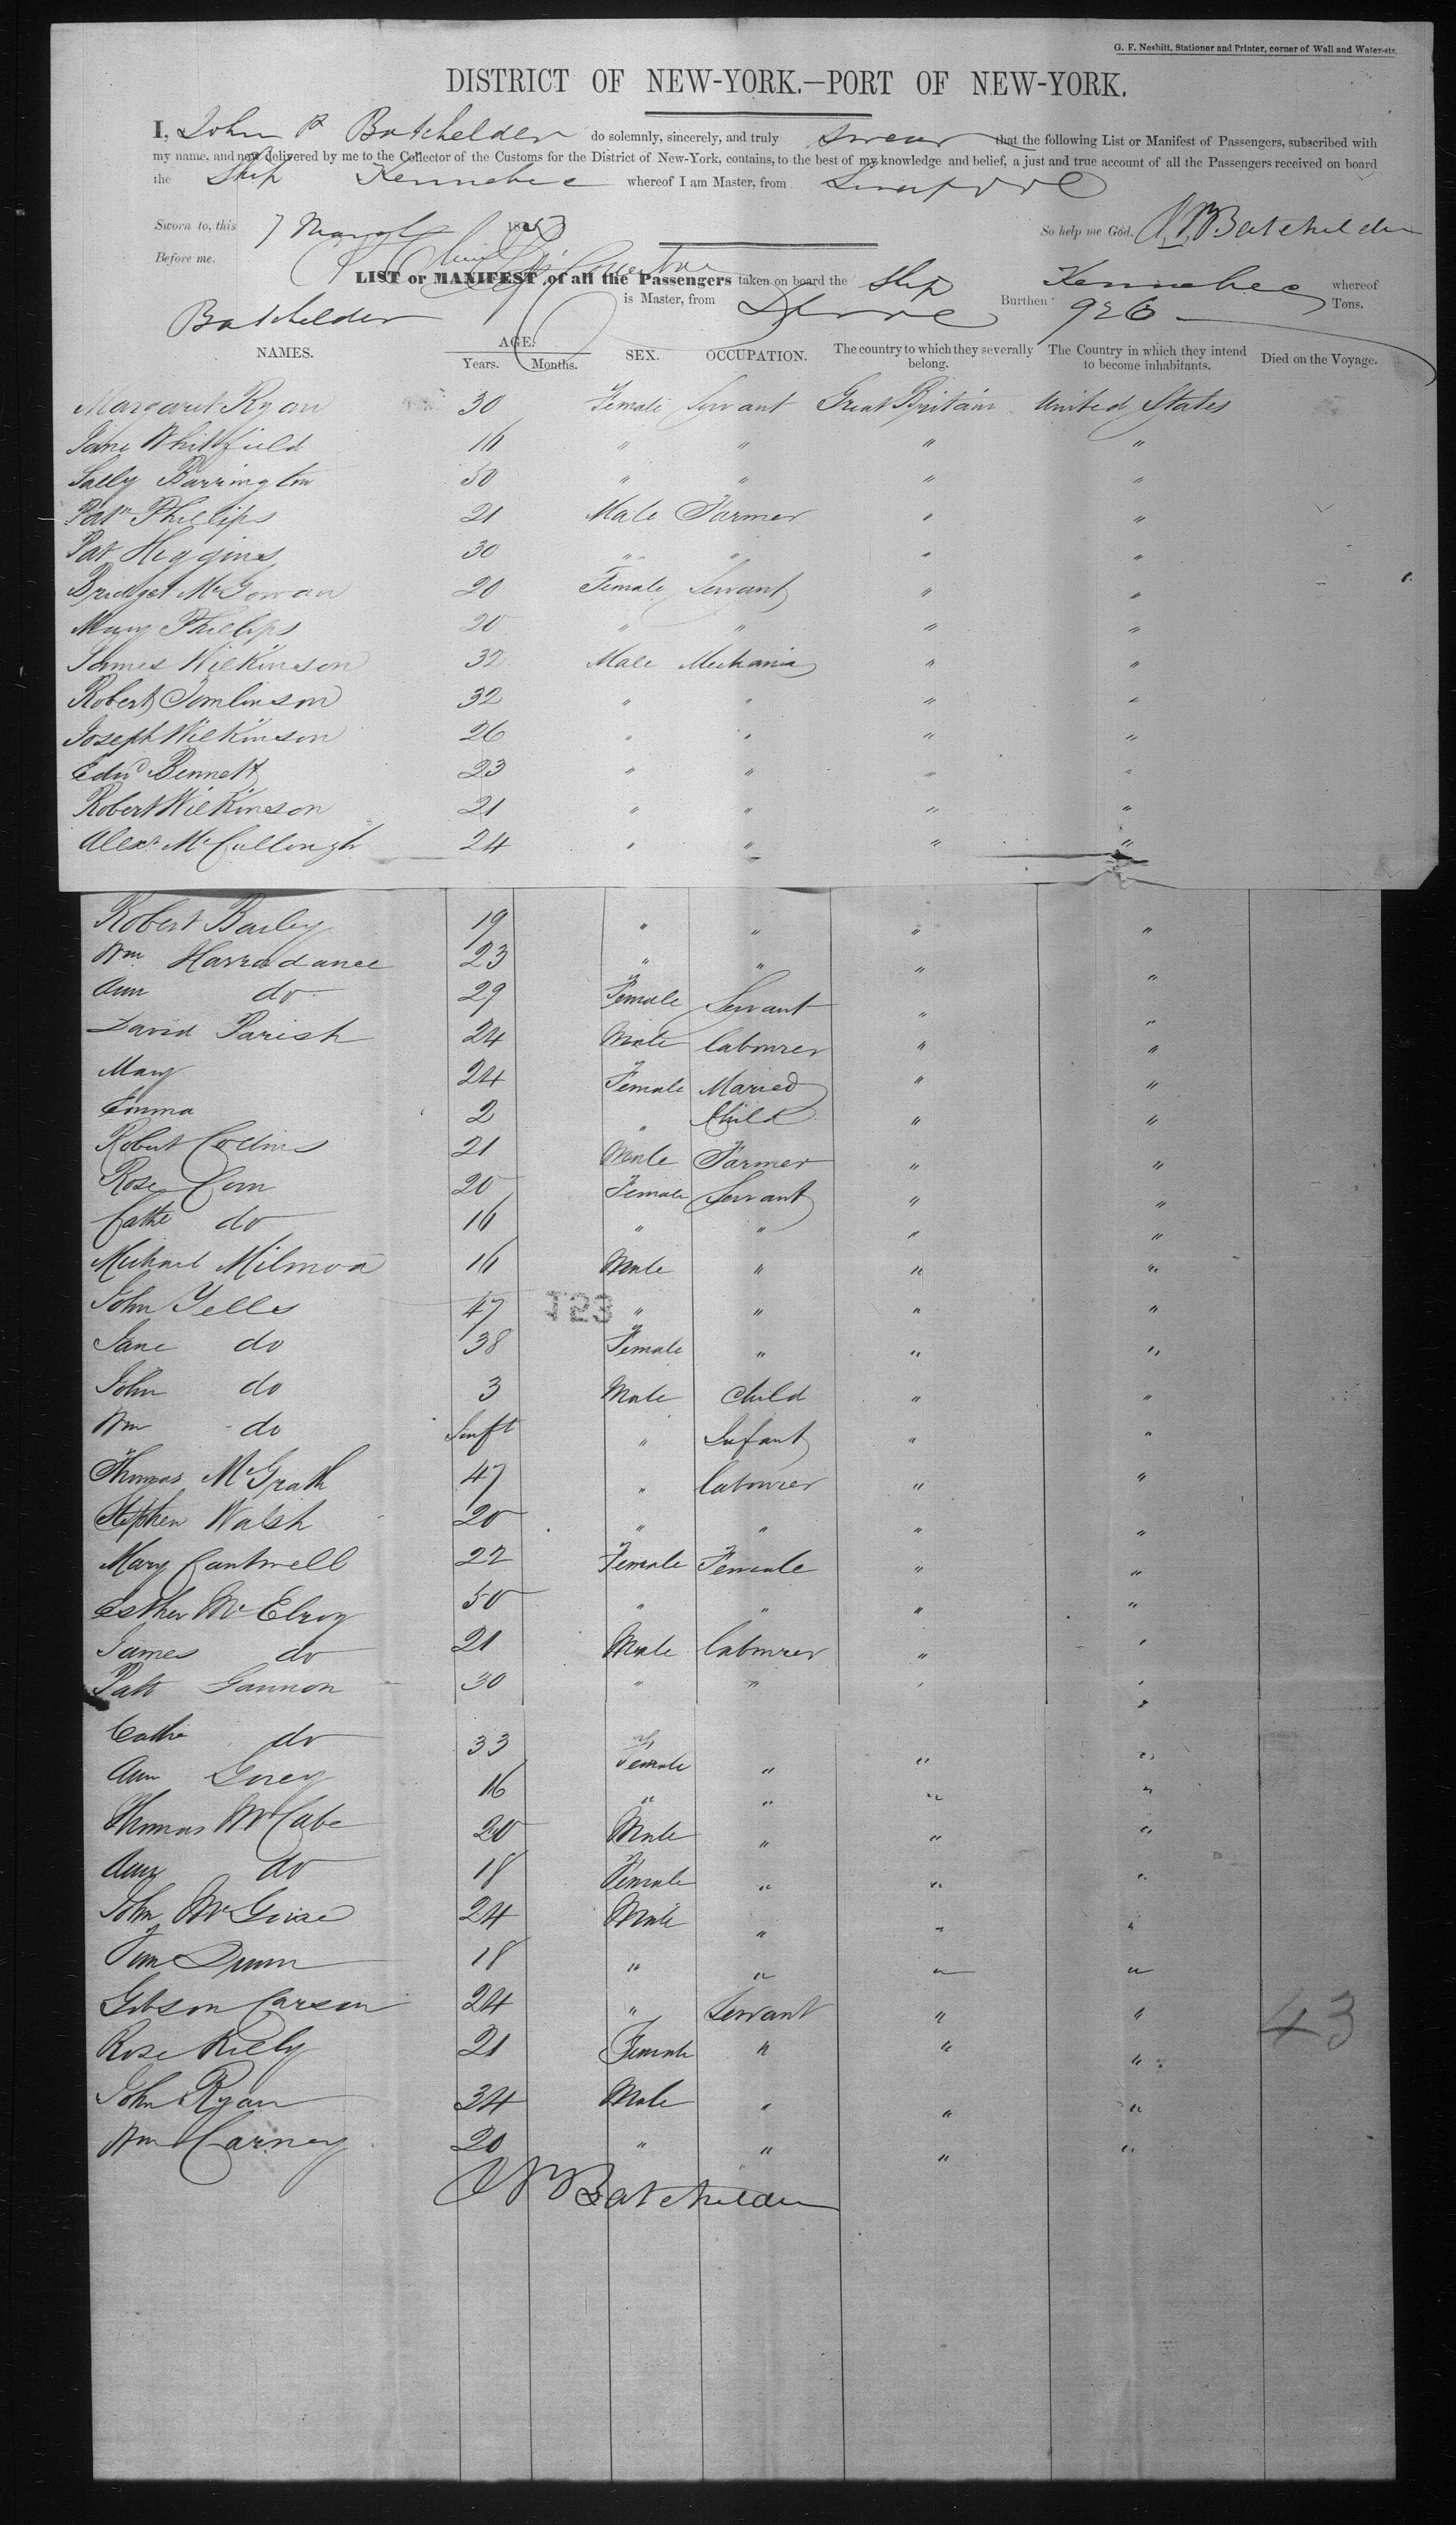 G. F. Nesbitt, Stationer and Printer, corner of Wall and Water-sts.
DISTRICT OF NEW-YORK.—PORT OF NEW-YORK.
I, John P Batchelder do solemnly, sincerely, and truly swear that the following List or Manifest of Passengers, subscribed with
my name, and now delivered by me to the Collector of the Customs for the District of New-York, contains, to the best of my knowledge and belief, a just and true account of all the Passengers received on board
the Ship Kennebec whereof I am Master, from Liverpool
Sworn to, this 7 March 18 So help me God. J P Batchelder
Before me.
LIST or MANIFEST of all the Passengers taken on board the Ship Kennebec whereof
Batchelder is Master, from Burthen 926 Tons.
NAMES. AGE. Years. Months. SEX. OCCUPATION. The country to which they severally belong. The Country in which they intend to become inhabitants. Died on the Voyage.
Margaret Ryan 30 Female Servant Great Britain United States
Jane Whitfield 16 " " " "
Sally Barrington 50 " " " "
Patk Phillips 21 Male Farmer " "
Pat Higgins 30 " " " "
Bridget McGowan 20 Female Servant " "
Mary Phillips 20 " " " "
James Wilkinson 32 Male Mechanic " "
Robert Tomlinson 32 " " " "
Joseph Wilkinson 26 " " " "
Edwd Bennett 23 " " " "
Robert Wilkinson 21 " " " "
Alexr McCullough 24 " " " "
Robert Baily 19 " " " "
Wm Harradance 23 " " " "
Ann do 29 Female Servant " "
David Parish 24 Male labourer " "
Mary 24 Female Maried " "
Emma 2 " Child " "
Robert Collins 21 Male Farmer " "
Rose Corn 20 Female Servant " "
Cathe do 16 " " " "
Michael Milmoa 16 Male " " "
John Yelles 47 " " " "
123
Jane do 38 Female " " "
John do 3 Male Child " "
Wm do Inft " Infant " "
Thomas McGrath 47 " labourer " "
Stephen Walsh 20 " " " "
Mary Cantwell 22 Female Female " "
Esther McElroy 50 " " " "
James do 21 Male labourer " "
Patt Gannon 30 " " " "
Cathe do 33 Female " " "
Ann Gorey 16 " " " "
Thomas McCabe 20 Male " " "
Ann do 18 Female " " "
John McGuire 24 Male " " "
Dunn 18 " " " "
Gibson Carson 24 " Servant " "
43
Rose Riely 21 Female " " "
John Ryan 34 Male " " "
Wm Carney 20 " " " "
J P Batchelder